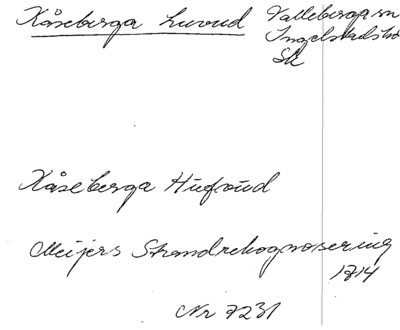 Kåseberga huvud
Valleberga sn
Ingelstads hd
Sk
Kåseberga Hufvud
Meijers Strandrekognosering
1714
Nr 7231